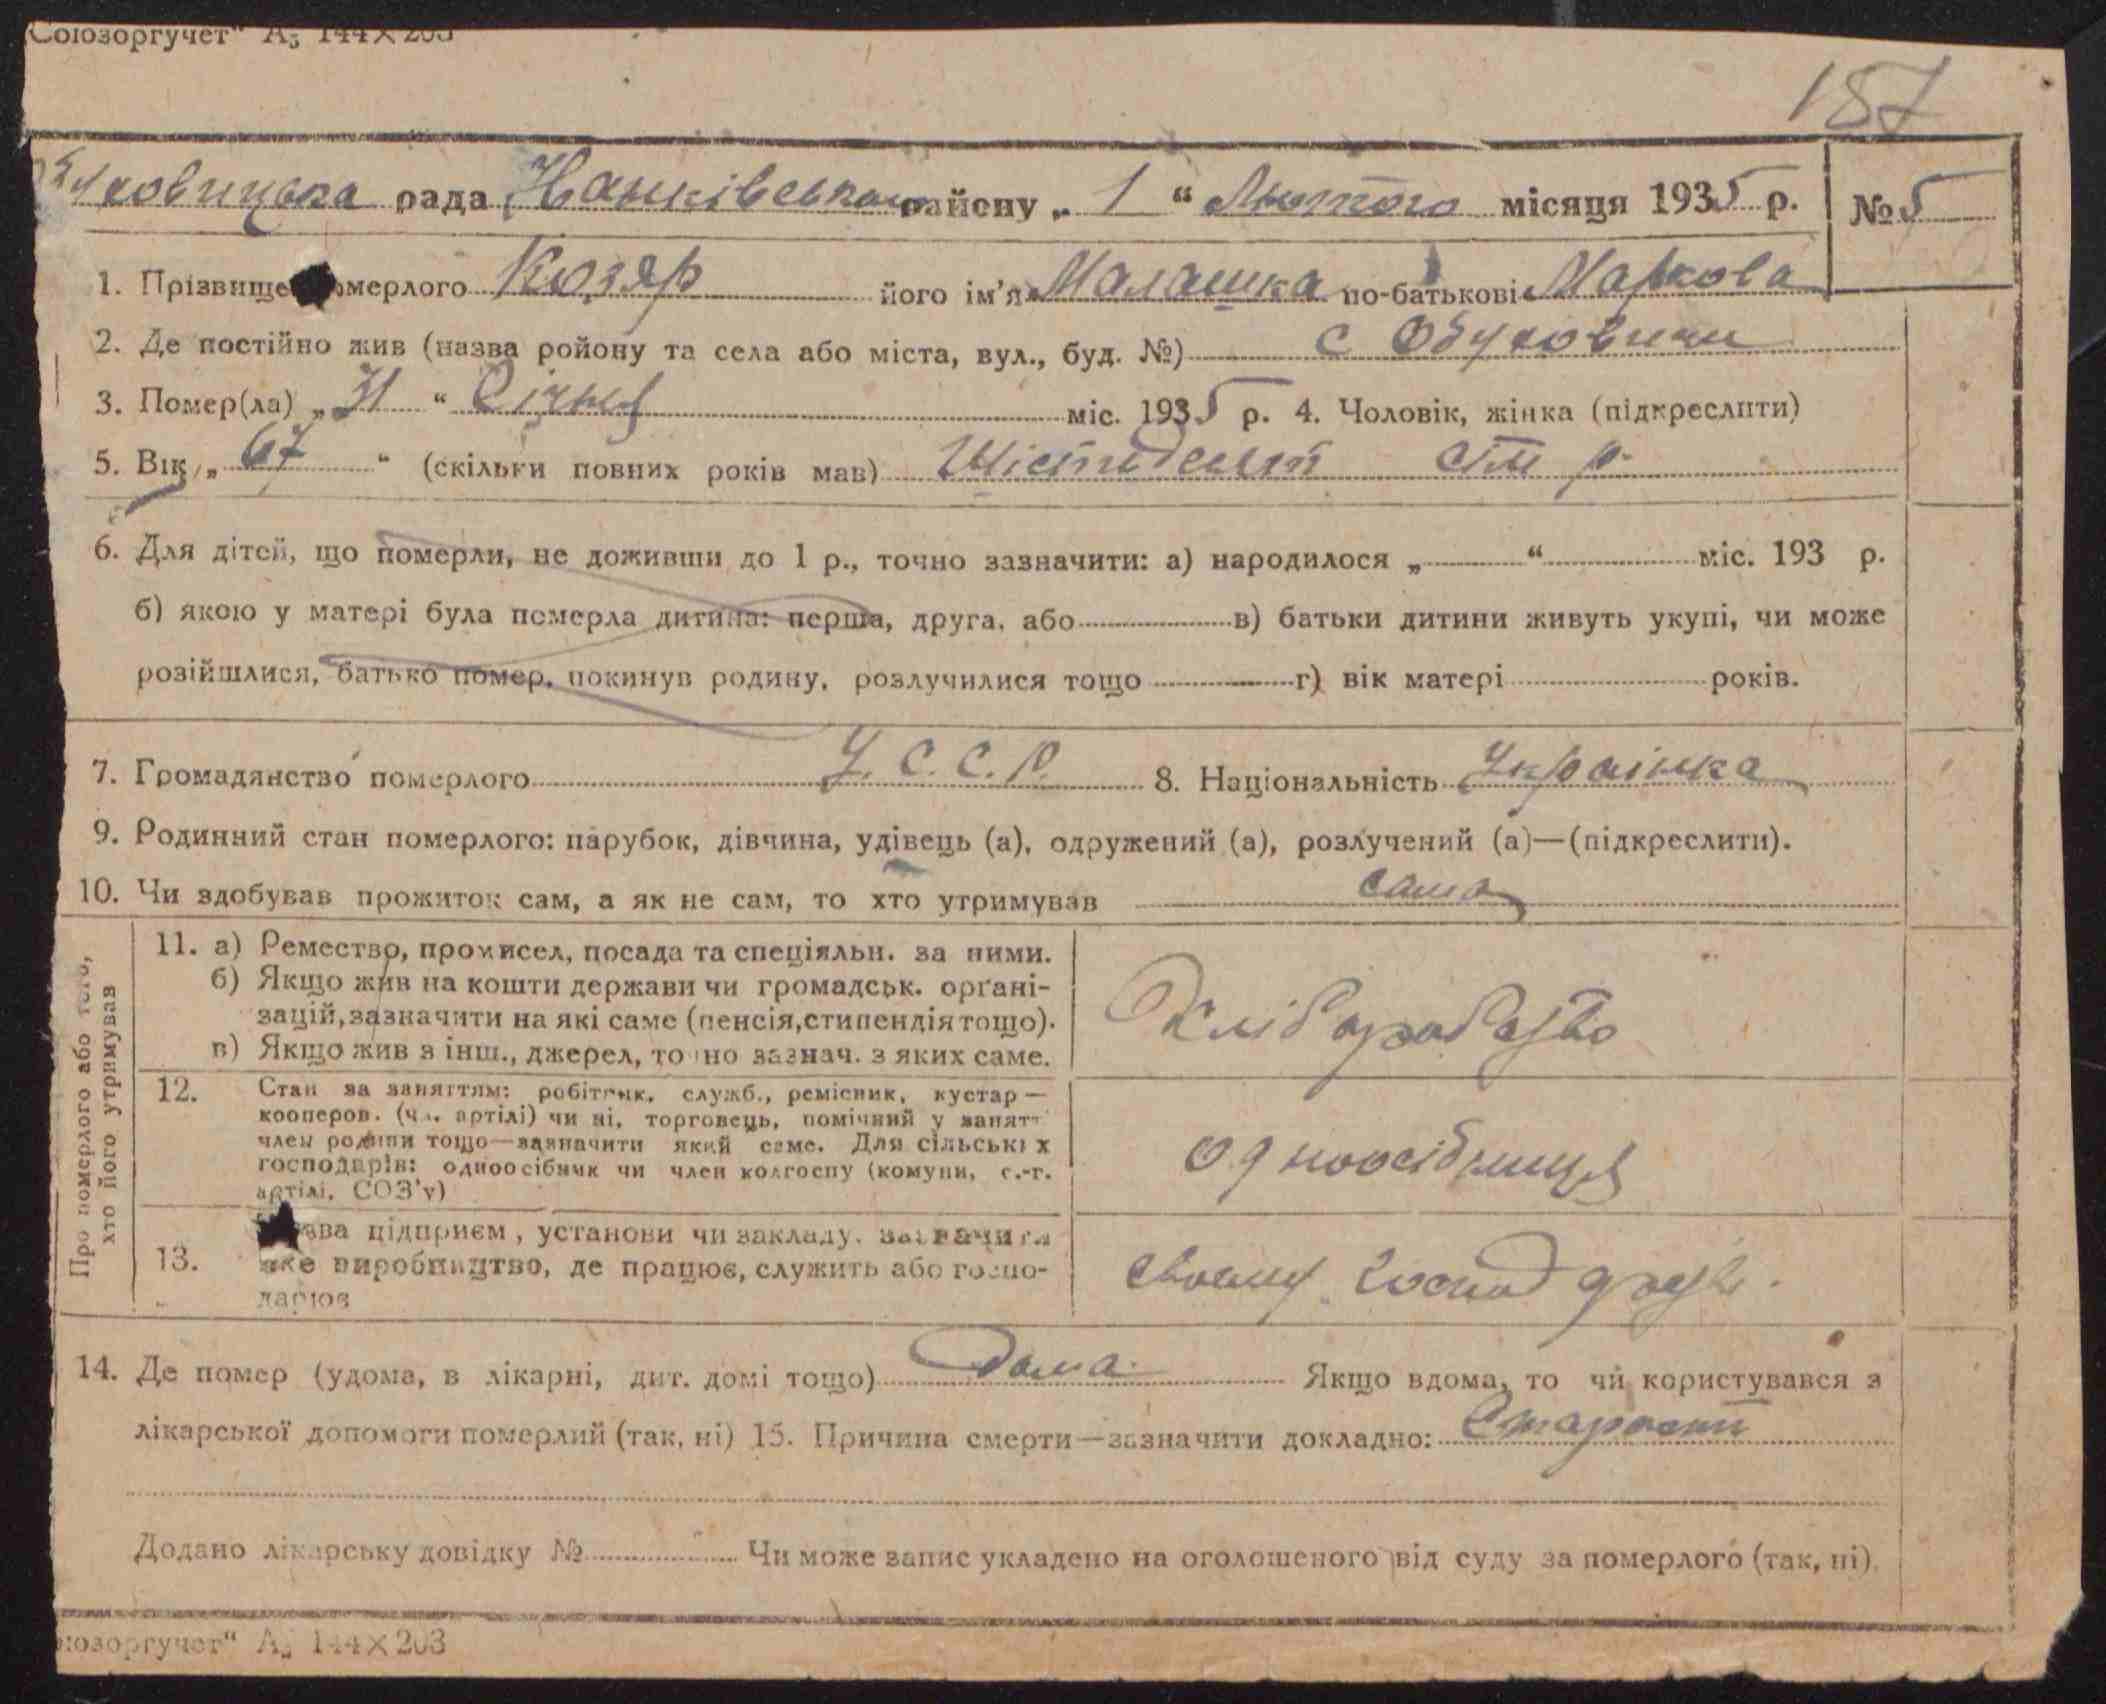 Союзоргучет" А5 144×203
187
уховицька рада Іванківського району „ 1 " Лютого місяця 1935 р. № 5
1. Прізвище померлого Козяр його ім'я Малашка по-батькові Маркова
2. Де постійно жив (назва ройону та села або міста, вул., буд. №) с Обуховичи
3. Помер(ла) „ 31 " Січня міс. 1935 р. 4. Чоловік, жінка (підкреслити)
5. Вік „ 67 " (скільки повних років мав) Шістидесят сім р.
6. Для дітей, що померли, не доживши до 1 р., точно зазначити: а) народилося „ " міс. 193 р.
б) якою у матері була померла дитина: перша, друга, або в) батьки дитини живуть укупі, чи може
розійшлися, батько помер, покинув родину, розлучилися тощо г) вік матері років.
7. Громадянство померлого У.С.С.Р. 8. Національність Українка
9. Родинний стан померлого: парубок, дівчина, удівець (а), одружений (а), розлучений (а)—(підкреслити).
10. Чи здобував прожиток сам, а як не сам, то хто утримував сама
Про померлого або того,
хто його утримував
11. а) Ремество, промисел, посада та спеціяльн. за ними.
б) Якщо жив на кошти держави чи громадськ. орґані-
зацій, зазначити на які саме (пенсія, стипендія тощо).
в) Якщо жив з інш., джерел, точно зазнач. з яких саме.
Хліборобство
12. Стан за заняттям: робітник, служб., ремісник, кустар—
кооперов. (чл. артілі) чи ні, торговець, помічний у занятт
член родини тощо—зазначити який саме. Для сільських
господарів: одноосібник чи член колгоспу (комуни, с.-г.
артілі, СОЗ'у)
одноосібниця
13. Назва підприєм, установи чи закладу, зазначити
яке виробництво, де працює, служить або госпо-
дарює
своєму
14. Де помер (удома, в лікарні, дит. домі тощо) дома. Якщо вдома, то чи користувався з
лікарської допомоги померлий (так, ні) 15. Причина смерти—зазначити докладно: Старости
Додано лікарську довідку № Чи може запис укладено на оголошеного від суду за померлого (так, ні).
юзоргучет" А5 144×203